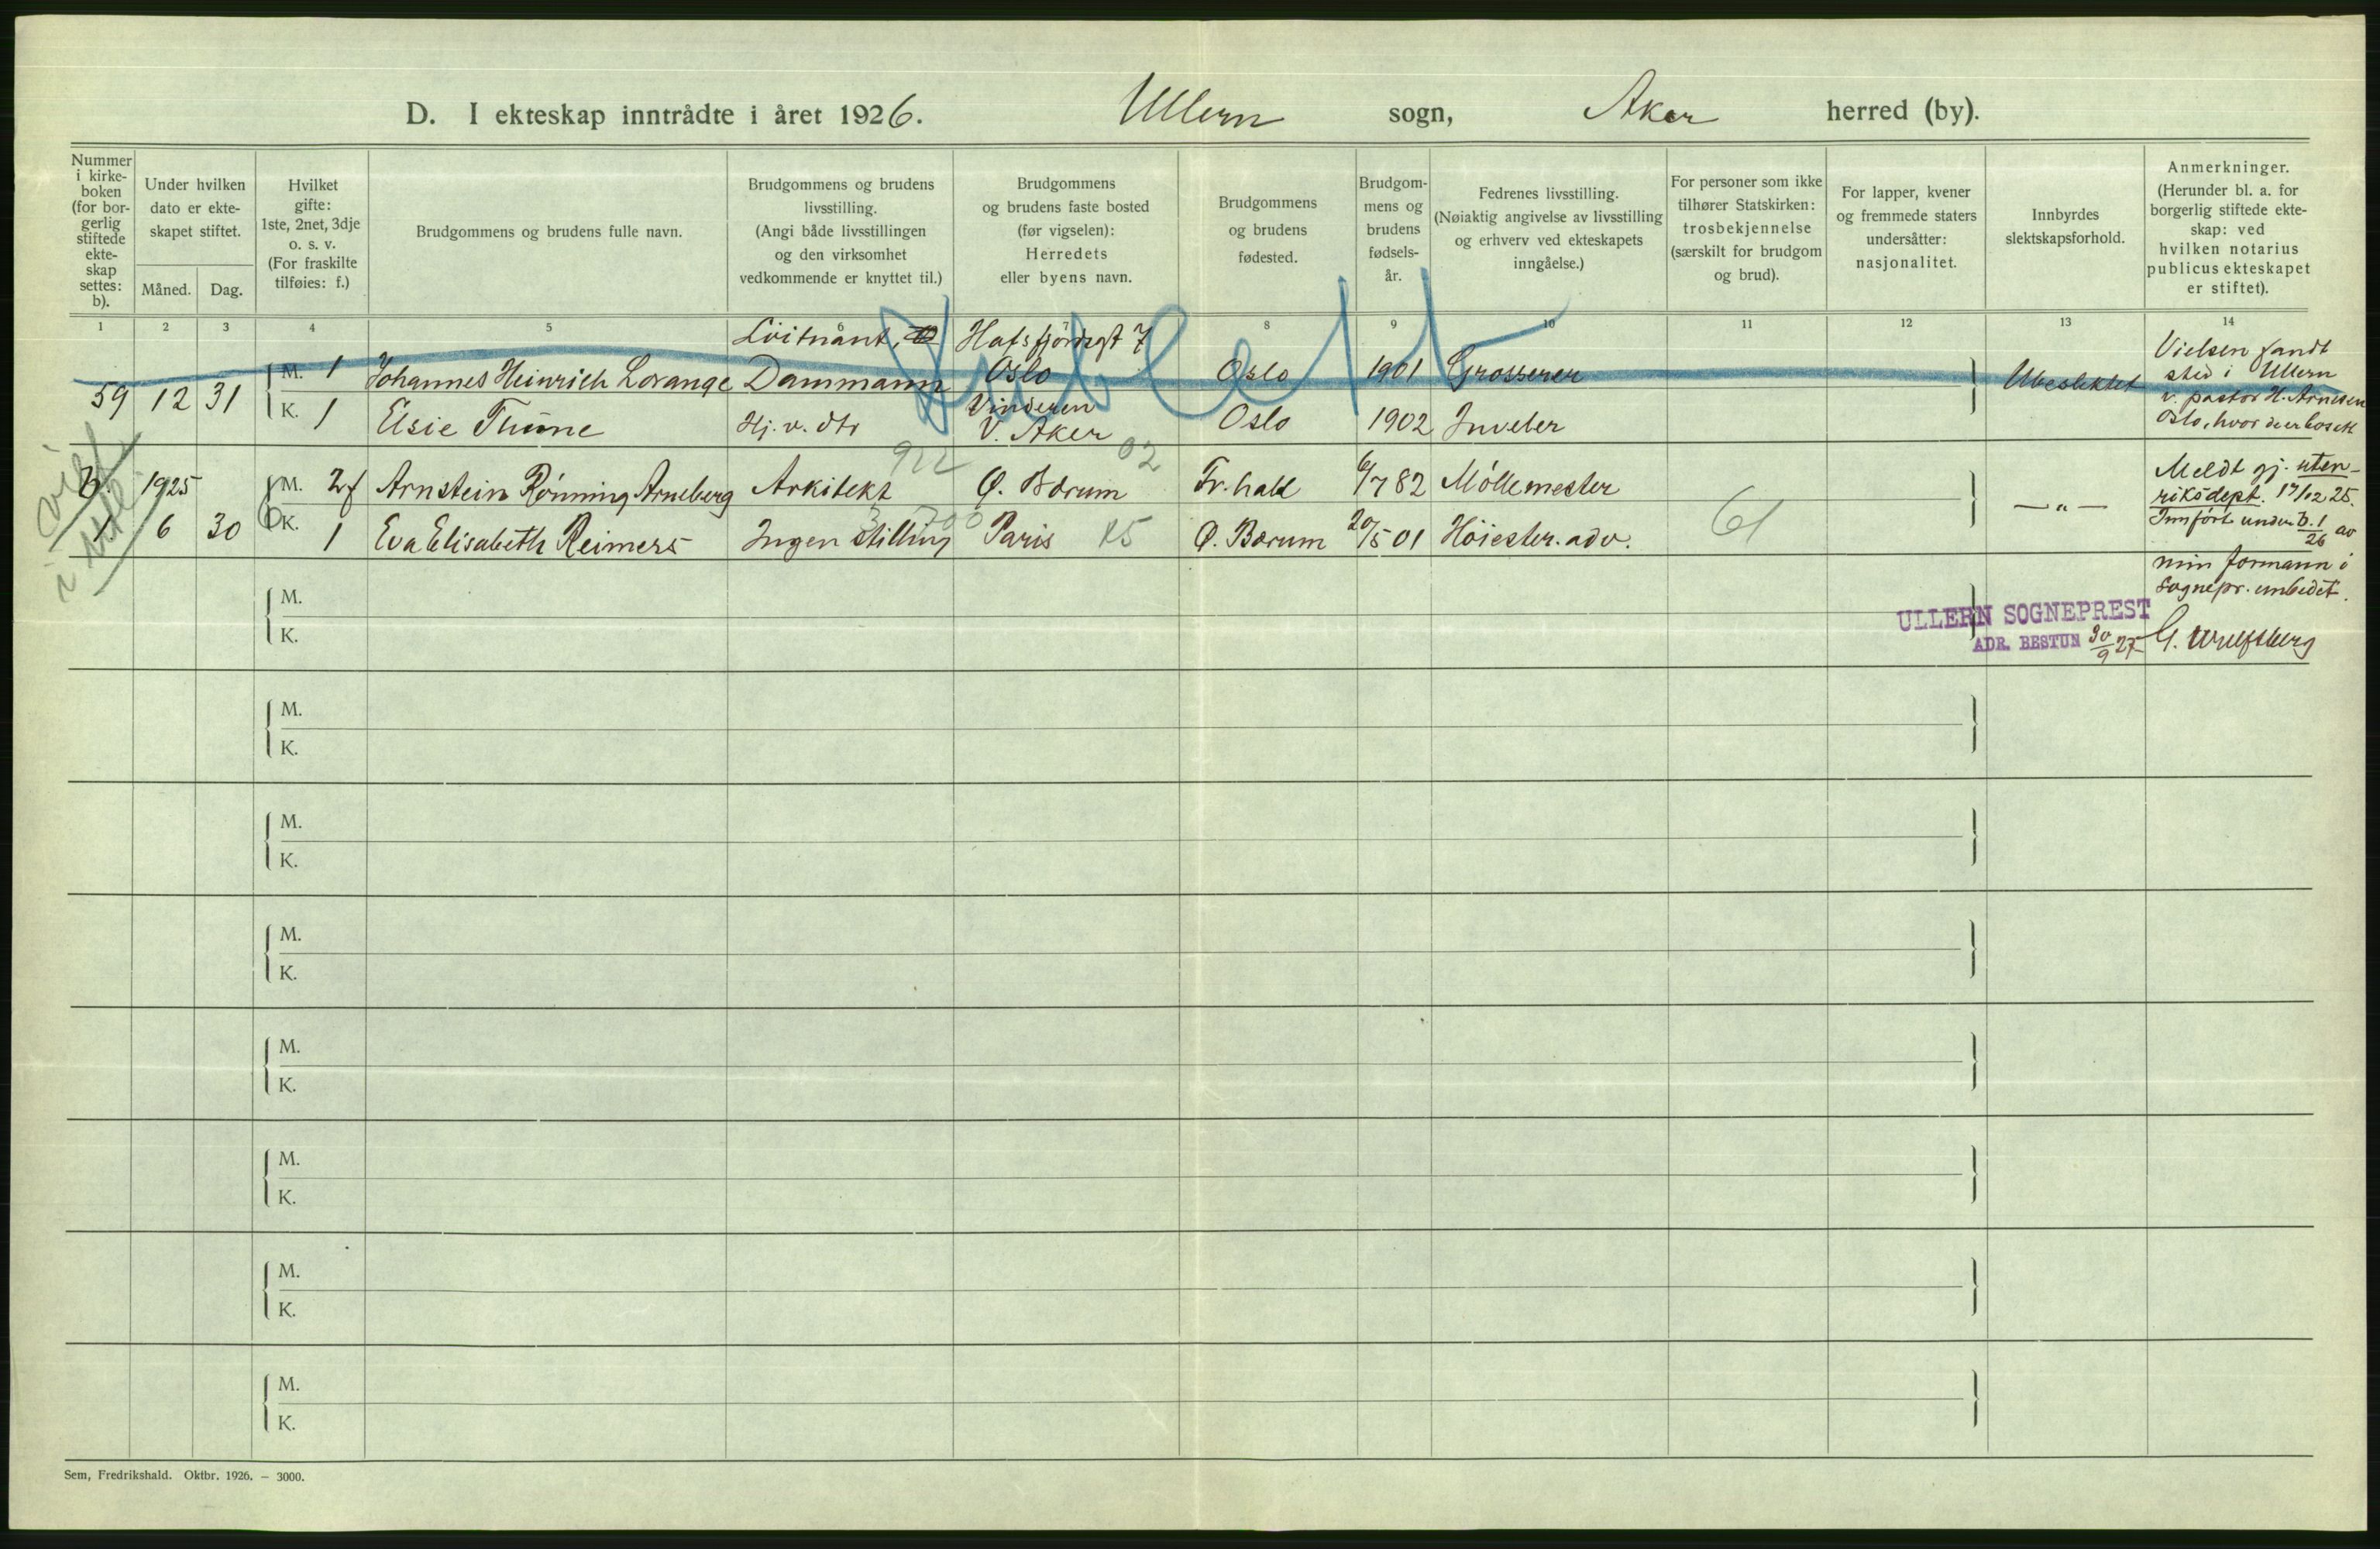 D. I ekteskap inntrådte i året 1926. Ullern sogn, Aker herred (by).
Nummer i kirke- boken (for bor- gerlig stiftede ekte- skap settes: b).
Under hvilken dato er ekte- skapet stiftet.
Måned. Dag.
Hvilket gifte: 1ste, 2net, 3dje o. s. v. (For fraskilte tilføies: f.)
Brudgommens og brudens fulle navn.
Brudgommens og brudens livsstilling. (Angi både livsstillingen og den virksomhet vedkommende er knyttet til.)
Brudgommens og brudens faste bosted (før vigselen): Herredets eller byens navn.
Brudgommens og brudens fødested.
Brudgom- mens og brudens fødsels- år.
Fedrenes livsstilling. (Nøiaktig angivelse av livsstilling og erhverv ved ekteskapets inngåelse.)
For personer som ikke tilhører Statskirken: trosbekjennelse (særskilt for brudgom og brud).
For lapper, kvener og fremmede staters undersåtter: nasjonalitet.
Innbyrdes slektskapsforhold.
Anmerkninger. (Herunder bl. a. for borgerlig stiftede ekte- skap: ved hvilken notarius publicus ekteskapet er stiftet).
1 2 3 4 5 6 7 8 9 10 11 12 13 14
Dublett
Löitnant, Hafsfjordsgt 7
59 12 31 M. 1 Johannes Heinrich Lorange Dammann Oslo Oslo 1901 Grosserer Ubeslektet
K. 1 Elsie Thüne Hj. v. dtr Vinderen V. Aker Oslo 1902 Juveler
Vielsen fandt
sted i Ullern
v. pastor H. Arnesen
Oslo, hvor de er bosatt
922 02
b. 1925 M. 2f Arnstein Rönning Arneberg Arkitekt Ø. Bærum Fr.hald 6/7 82 Möllemester
1 6 30 K. 1 Eva Elisabeth Reimers Ingen stilling Paris K5 Ø. Bærum 20/5 01 Höiester. adv. 61 — " —
Meldt gj. uten-
riksdept. 17/12 25.
Innfört under b. 1/26 av
min formann i
sognepr. embedet.
ULLERN SOGNEPREST
ADR. BESTUN 30/9 27 G. Wulfsberg
M.
K.
M.
K.
M.
K.
M.
K.
M.
K.
M.
K.
M.
K.
M.
K.
Sem, Fredrikshald. Oktbr. 1926. — 3000.